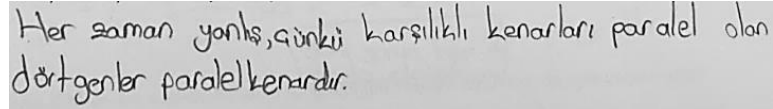 Her zaman yanlış, çünkü karşılıklı kenarları paralel olan
dörtgenler paralelkenardır.